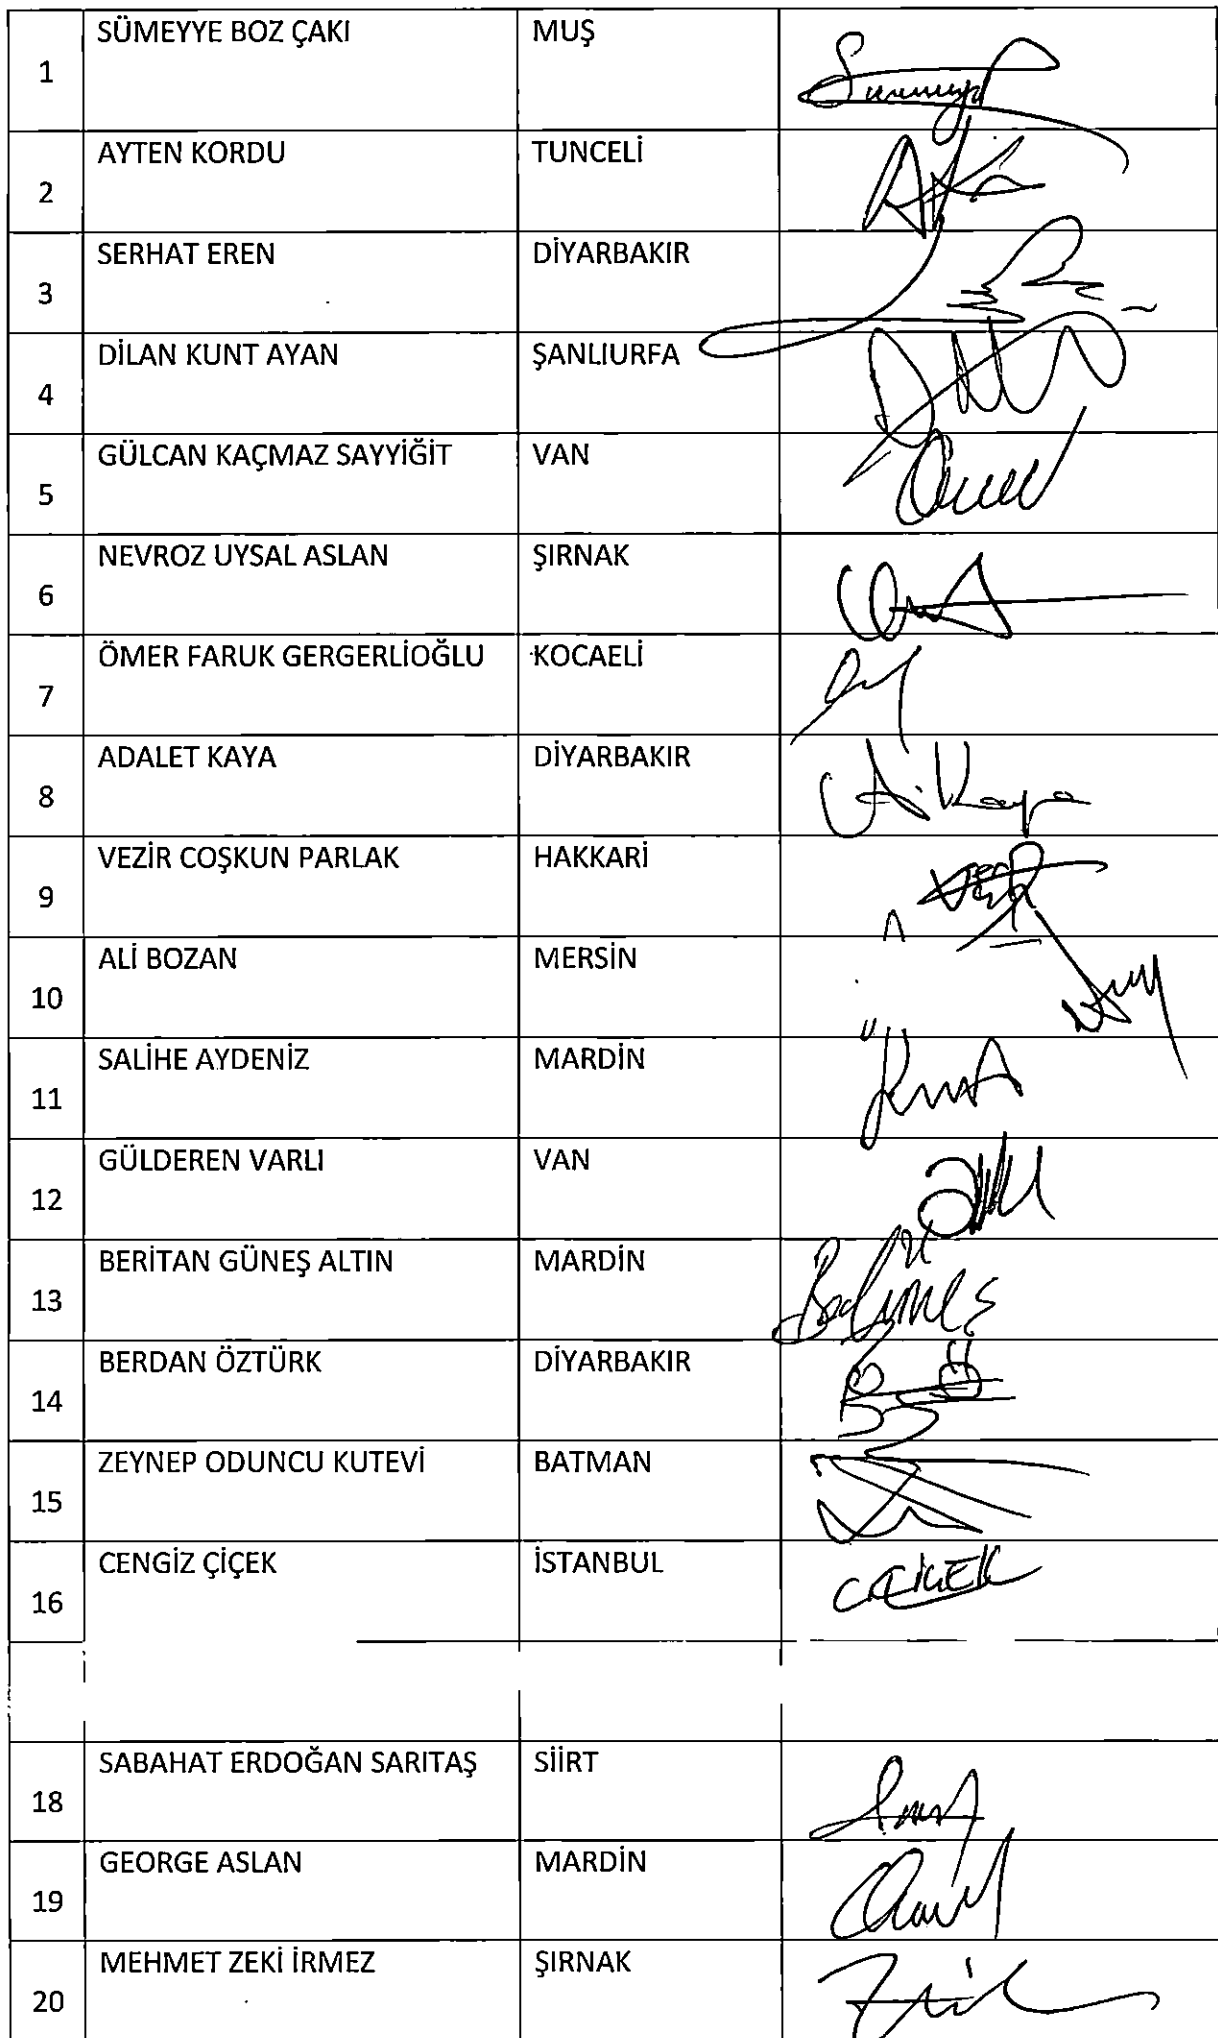 1 SÜMEYYE BOZ ÇAKI MUŞ
2 AYTEN KORDU TUNCELİ
3 SERHAT EREN DİYARBAKIR
4 DİLAN KUNT AYAN ŞANLIURFA
5 GÜLCAN KAÇMAZ SAYYİĞİT VAN
6 NEVROZ UYSAL ASLAN ŞIRNAK
7 ÖMER FARUK GERGERLİOĞLU KOCAELİ
8 ADALET KAYA DİYARBAKIR A.Kaya
9 VEZİR COŞKUN PARLAK HAKKARİ
10 ALİ BOZAN MERSİN
11 SALİHE AYDENİZ MARDİN
12 GÜLDEREN VARLI VAN
13 BERİTAN GÜNEŞ ALTIN MARDİN
14 BERDAN ÖZTÜRK DİYARBAKIR
15 ZEYNEP ODUNCU KUTEVİ BATMAN
16 CENGİZ ÇİÇEK İSTANBUL C.ÇİÇEK
18 SABAHAT ERDOĞAN SARITAŞ SİİRT
19 GEORGE ASLAN MARDİN
20 MEHMET ZEKİ İRMEZ ŞIRNAK